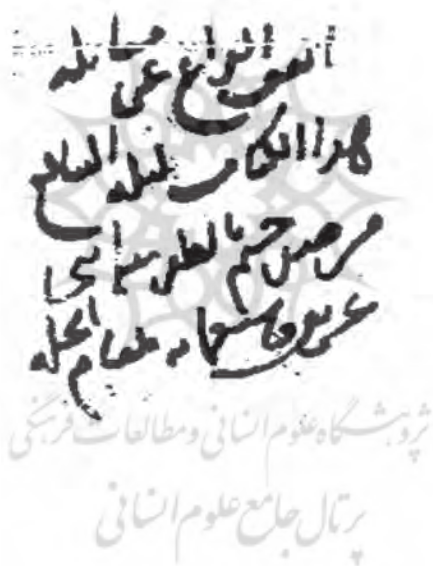 اتفق الفراغ عن مقابله
هذا الكتاب ليله
من صفر ختم بالظفر سنه
وسبعمايه بمقام الحله
پژوهشگاه علوم انسانی و مطالعات فرهنگی
پرتال جامع علوم انسانی